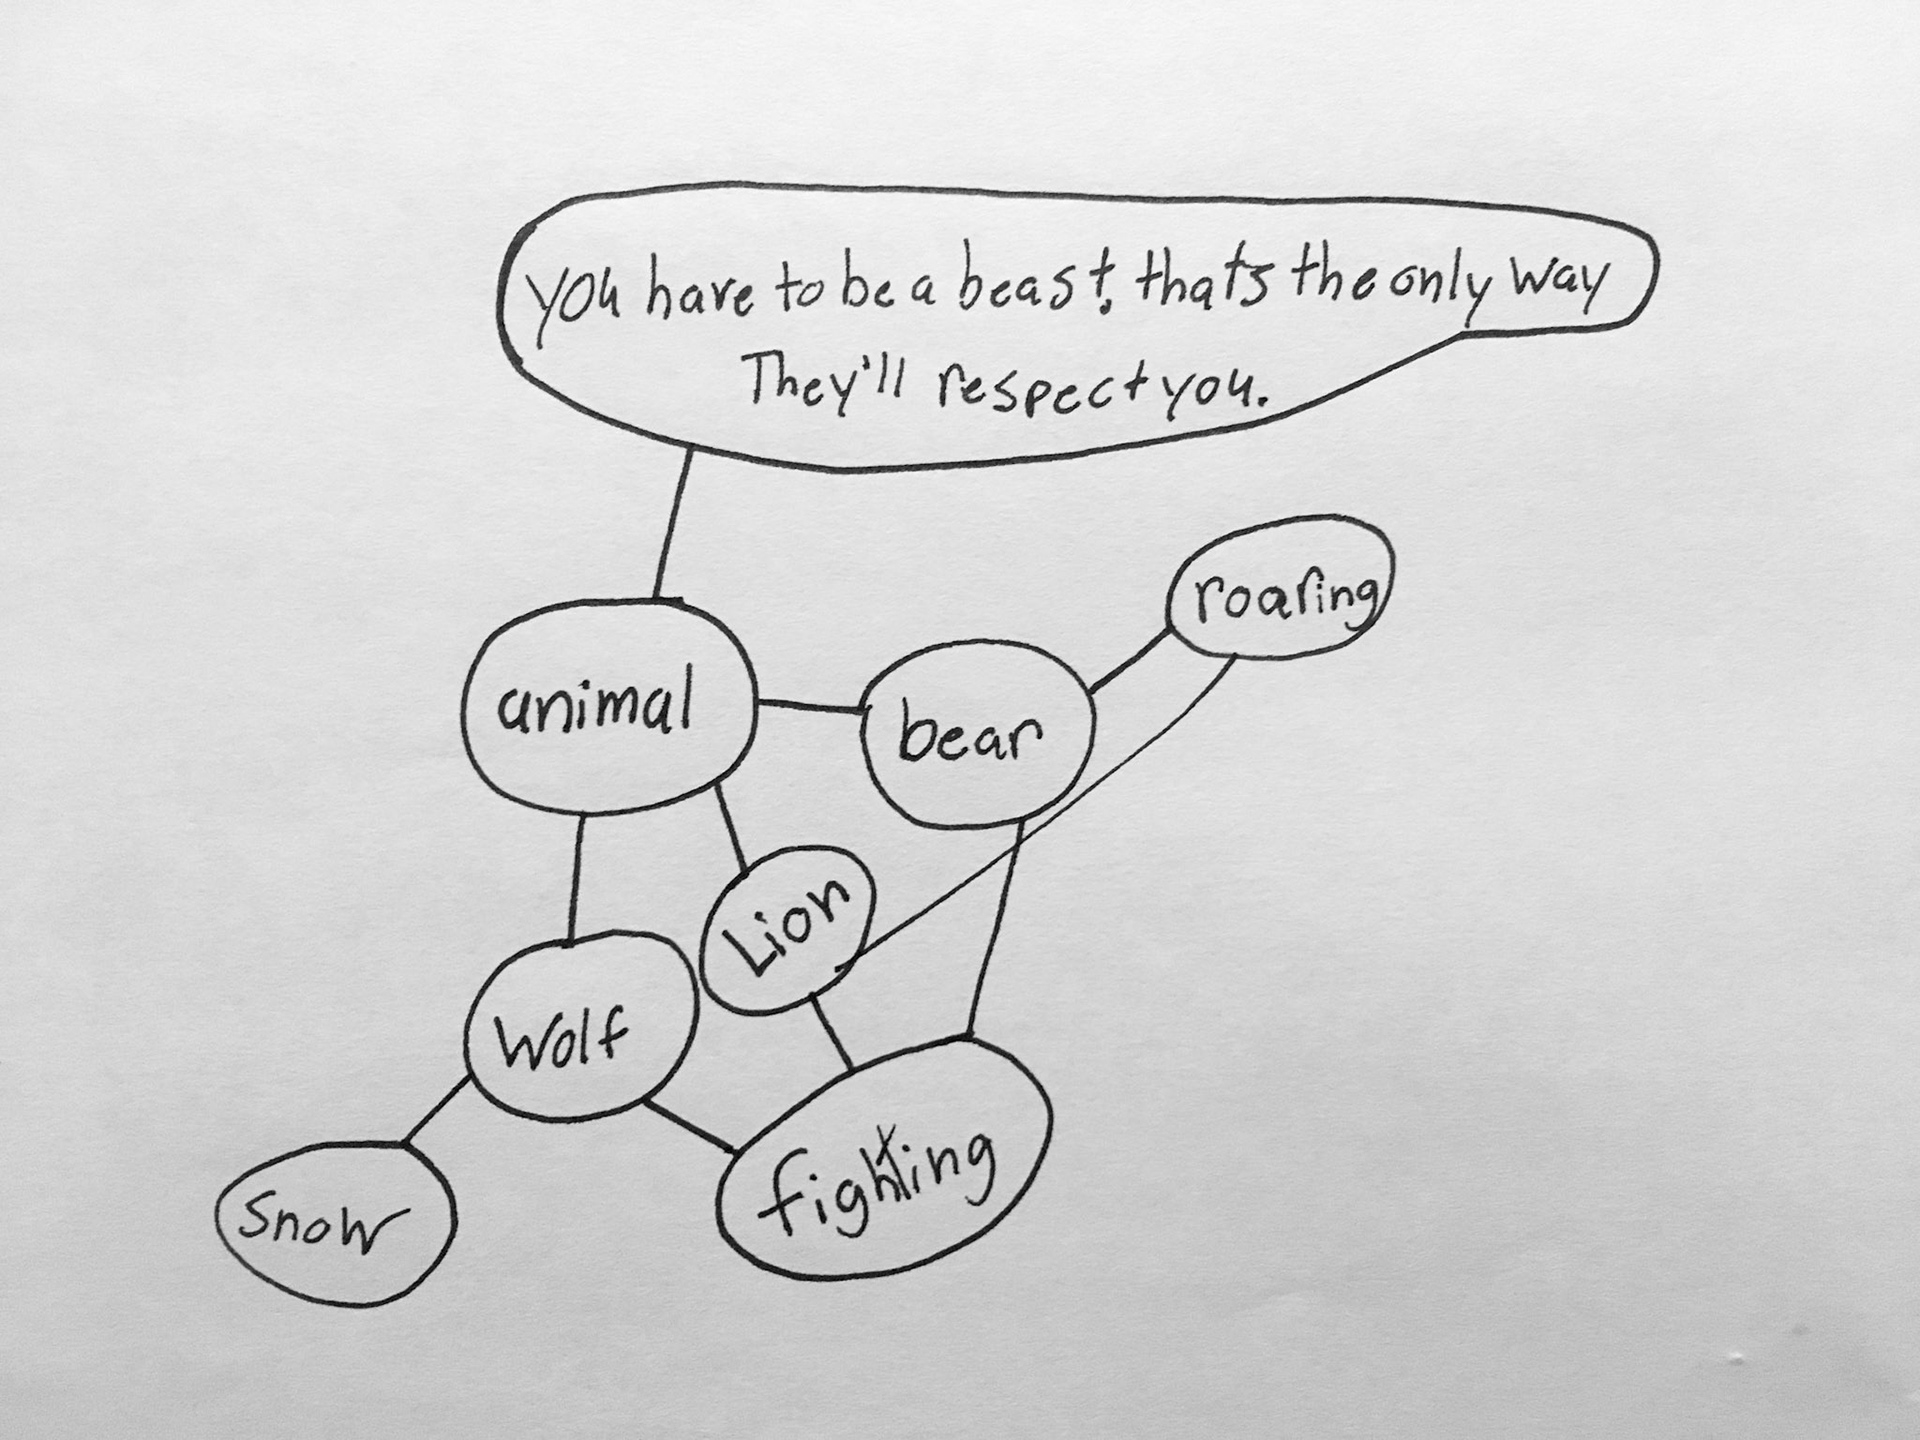 you have to be a beast, that's the only way
They'll respect you.
roaring
animal
bear
Lion
Wolf
fighting
Snow